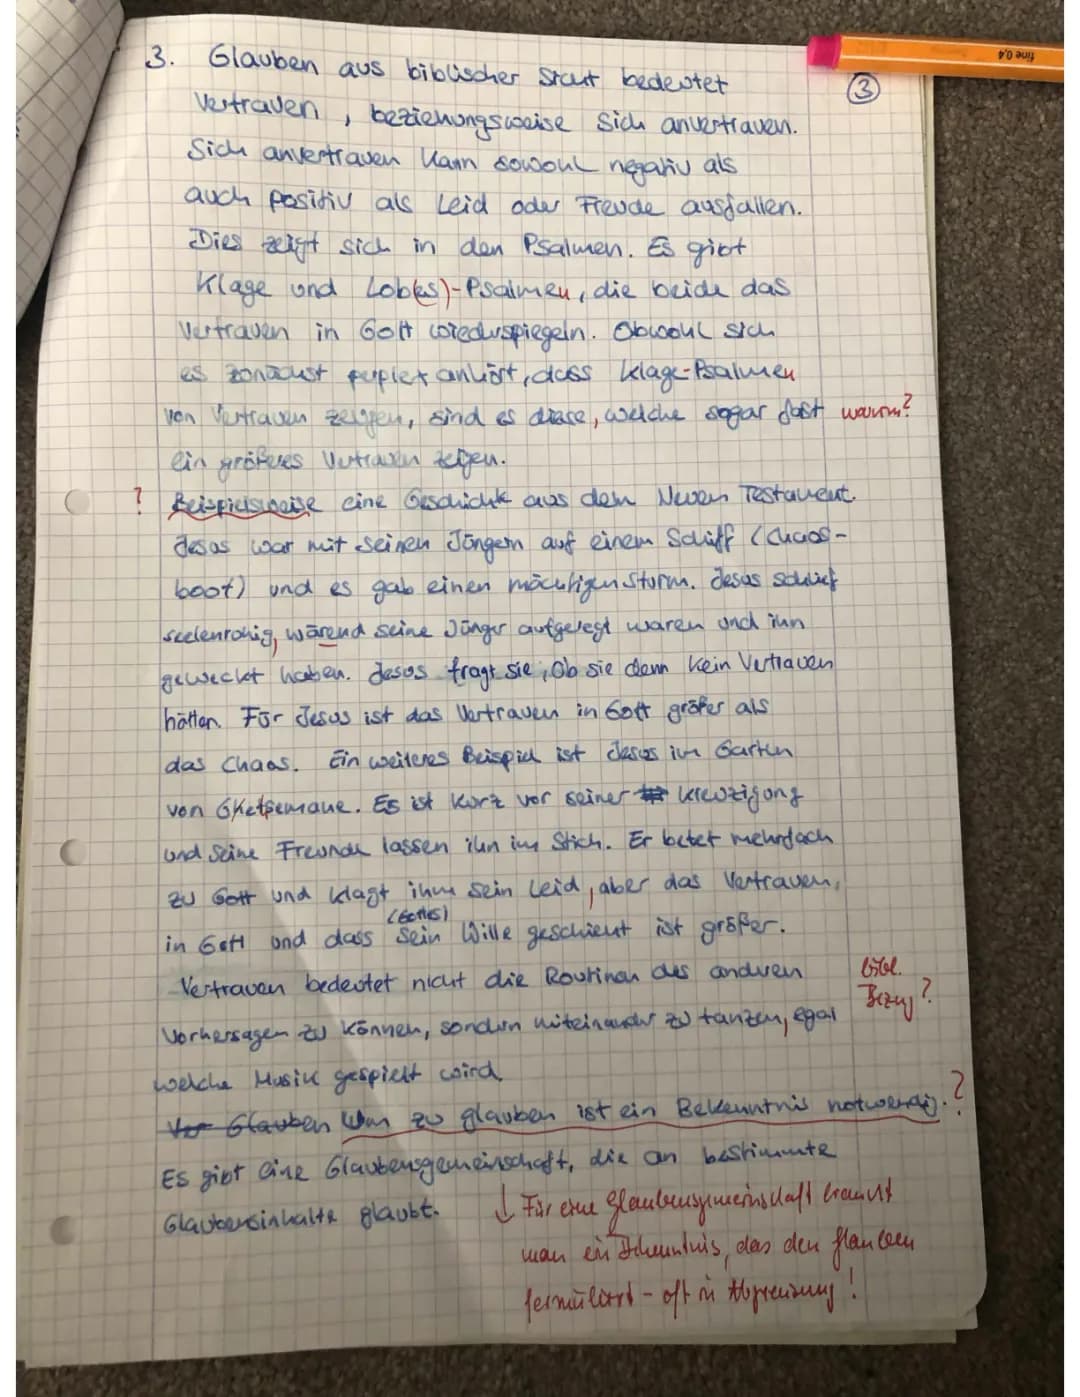 fine 0,4
3. Glauben aus biblischer Sicht bedeutet
③
Vertrauen, beziehungsweise Sich anvertrauen.
Sich anvertrauen kann sowohl negativ als
auch positiv als Leid oder Freude ausfallen.
Dies zeigt sich in den Psalmen. Es gibt
Klage und Lob(es)-Psalmen, die beide das
Vertrauen in Gott wiederspiegeln. Obwohl sich
es zunächst perplex anhört, dass Klage-Psalmen
von Vertrauen zeugen, sind es diese, welche sogar fast warum?
ein größeres Vertrauen zeigen.
? Beispielsweise eine Geschichte aus dem Neuen Testament.
Jesus war mit seinen Jüngern auf einem Schiff (Chaos-
boot) und es gab einen mächtigen Sturm. Jesus schlief
seelenruhig, wärend seine Jünger aufgeregt waren und ihn
geweckt haben. Jesus fragt sie, Ob sie denn kein Vertrauen
hätten. Für Jesus ist das Vertrauen in Gott größer als
das Chaos. Ein weiteres Beispiel ist Jesus im Garten
von Ghetsemane. Es ist kurz vor seiner Kreuzigung
und seine Freunde lassen ihn im Stich. Er betet mehrfach
zu Gott und klagt ihm sein Leid, aber das Vertrauen,
(Gottes)
in Gott und dass Sein Wille geschieht ist größer.
Vertrauen bedeutet nicht die Routinen des anderen bibl.
Vorhersagen zu können, sondern miteinander zu tanzen, egal Bezug?
welche Musik gespielt wird
Glauben Um zu glauben ist ein Bekenntnis notwendig. ?
Es gibt eine Glaubensgemeinschaft, die an bestimmte
Glaubensinhalte glaubt.
↓ Für eine Glaubensgemeinschaft braucht
man ein Bekenntnis, das den Glauben
formuliert - oft in Abgrenzung!